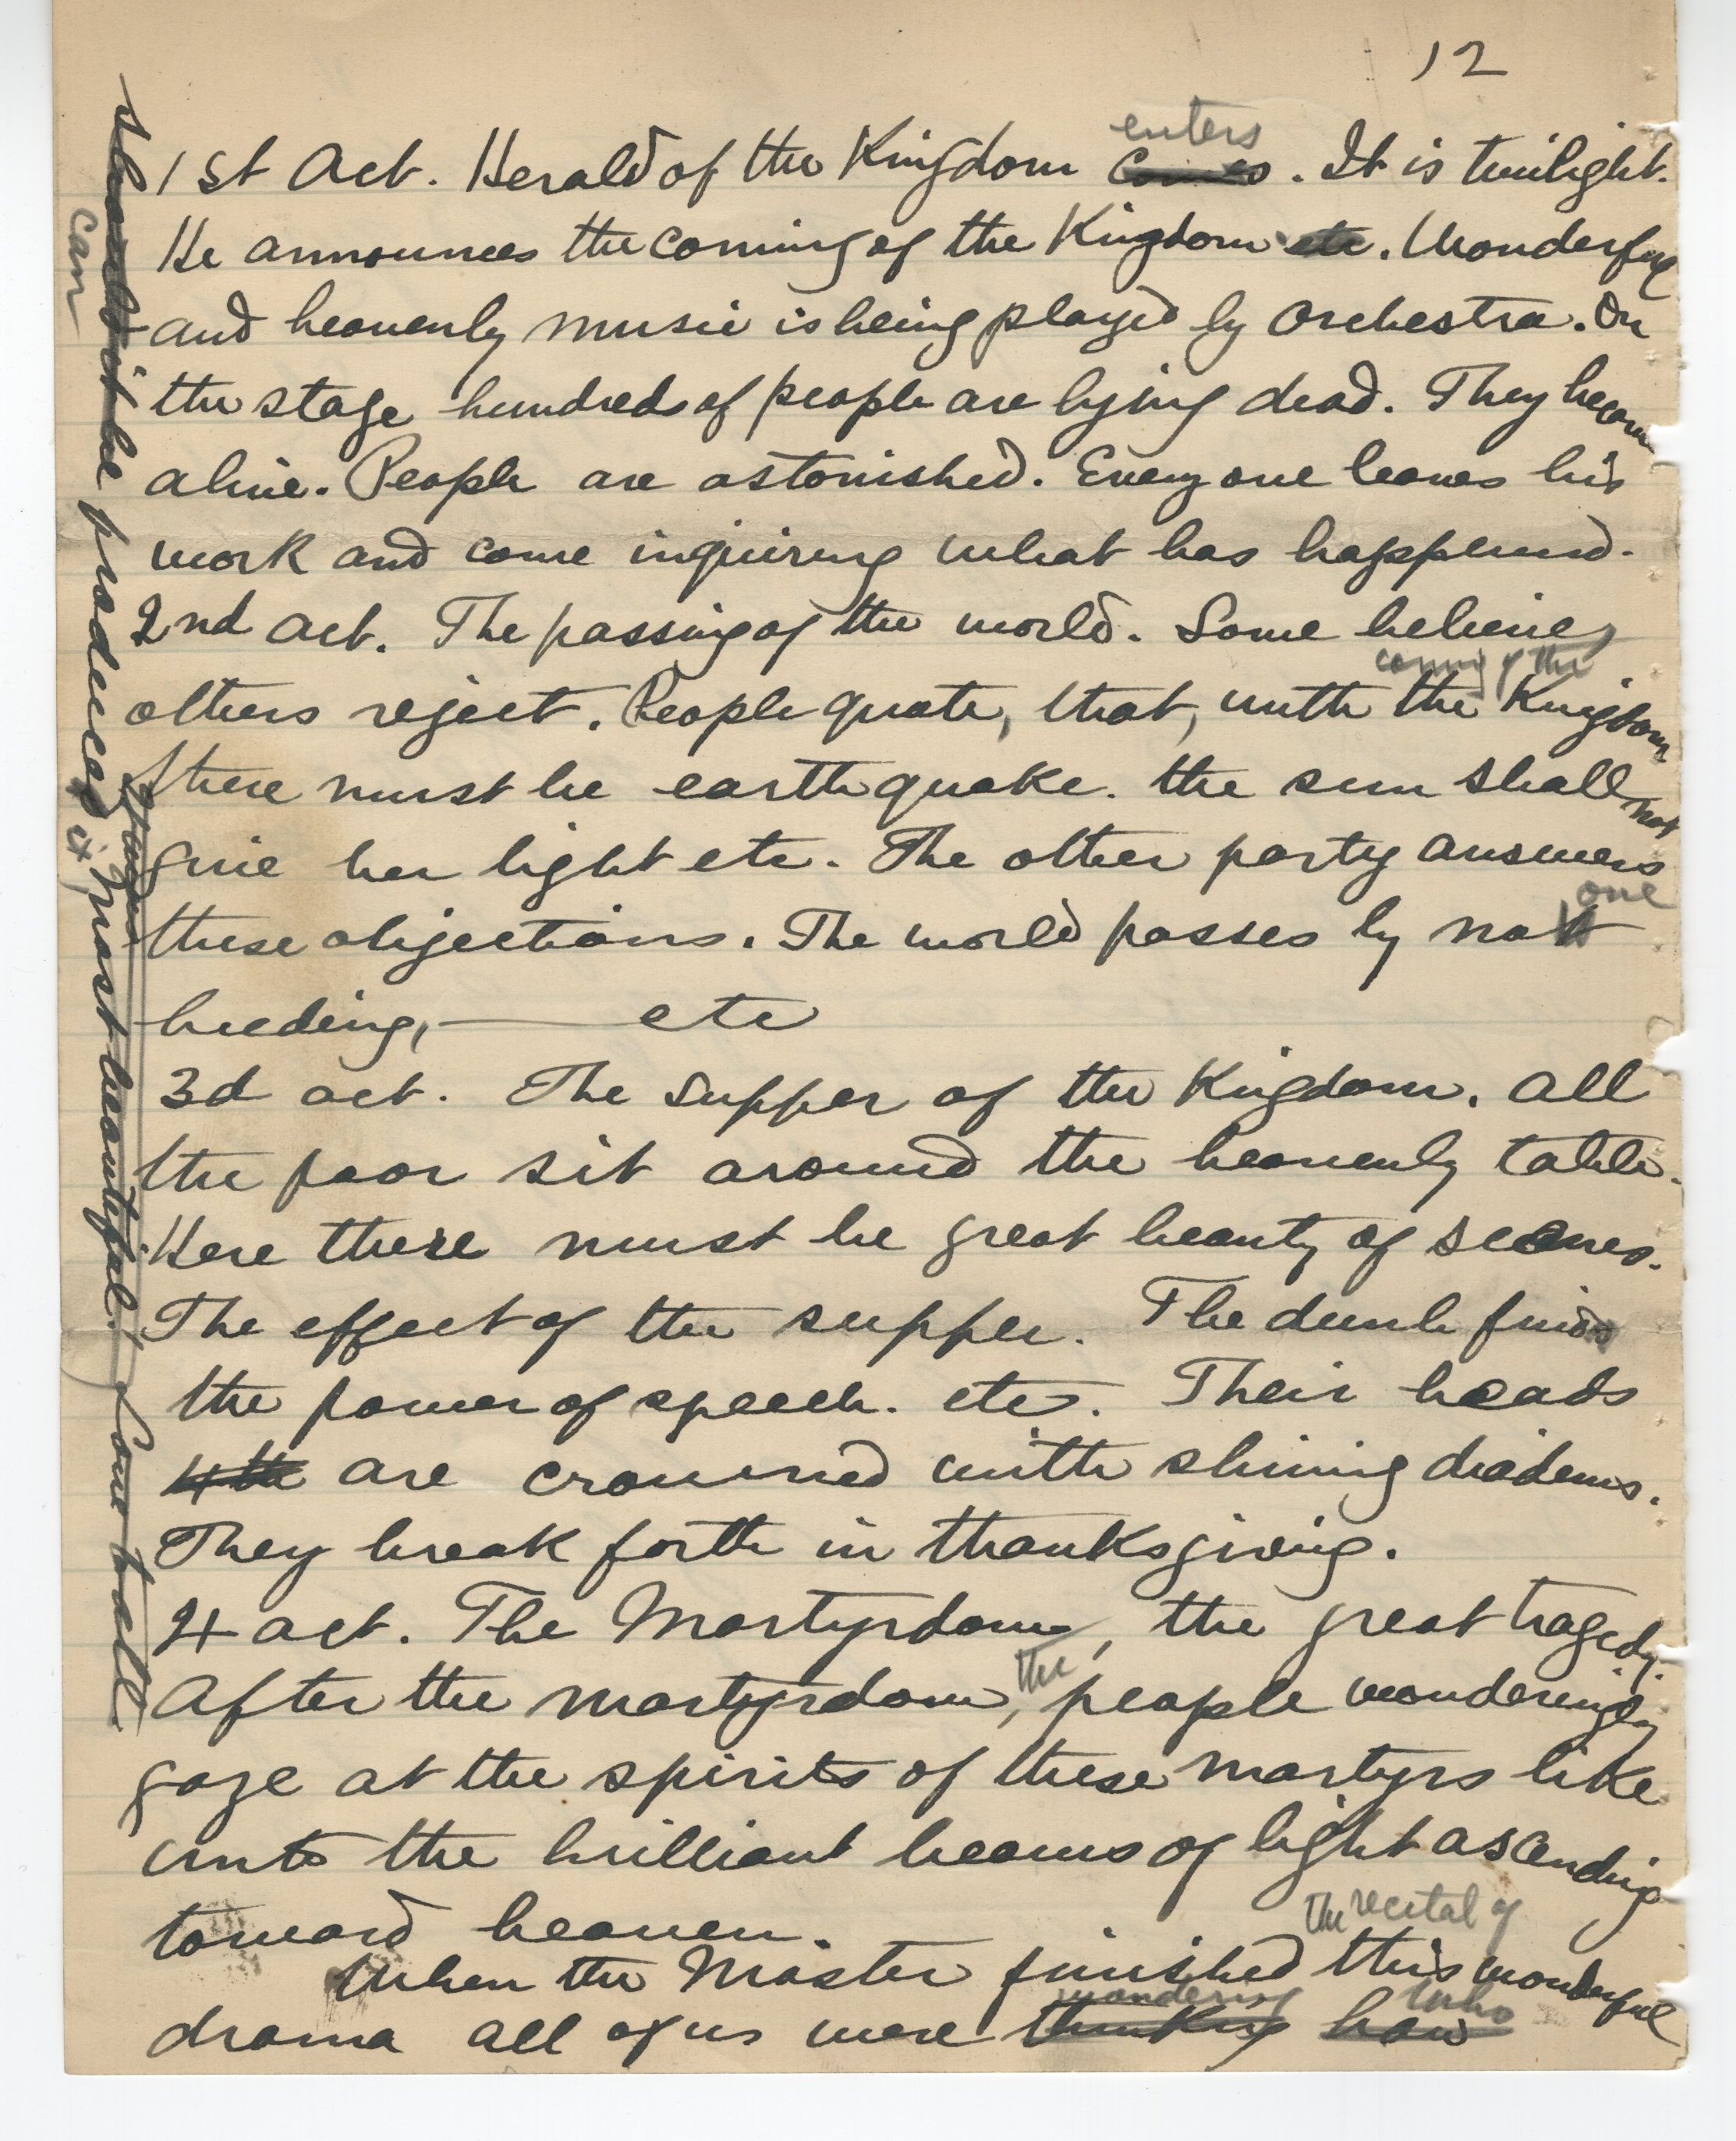 12
enters
1st Act. Herald of the Kingdom comes. It is twilight.
He announces the coming of the Kingdom etc. Wonderful
and heavenly music is being played by Orchestra. On
the stage hundreds of people are lying dead. They become
alive. People are astonished. Everyone leaves his
work and come inquiring what has happened.
2nd act. The passing of the world. Some believe,
coming of the
others reject. People quote, that, with the Kingdom
there must be earthquake. the sun shall not
give her light etc. The other party answers
one
these objections. The world passes by not
heeding, — etc
3d act. The Supper of the Kingdom. All
the poor sit around the heavenly table.
Here there must be great beauty of scenes.
The effect of the supper. The dumb finds
the power of speech. etc. Their heads
4th are crowned with shining diadems.
They break forth in thanksgiving.
4 act. The Martyrdom, the great tragedy.
the
After the martyrdom, people wonderingly
gaze at the spirits of these martyrs like
unto the brilliant beams of light ascending
toward heaven.
the recital of
When the Master finished this wonderful
wondering who
drama all of us were thinking how
should it be produced, most beautiful. Some hall
can
it